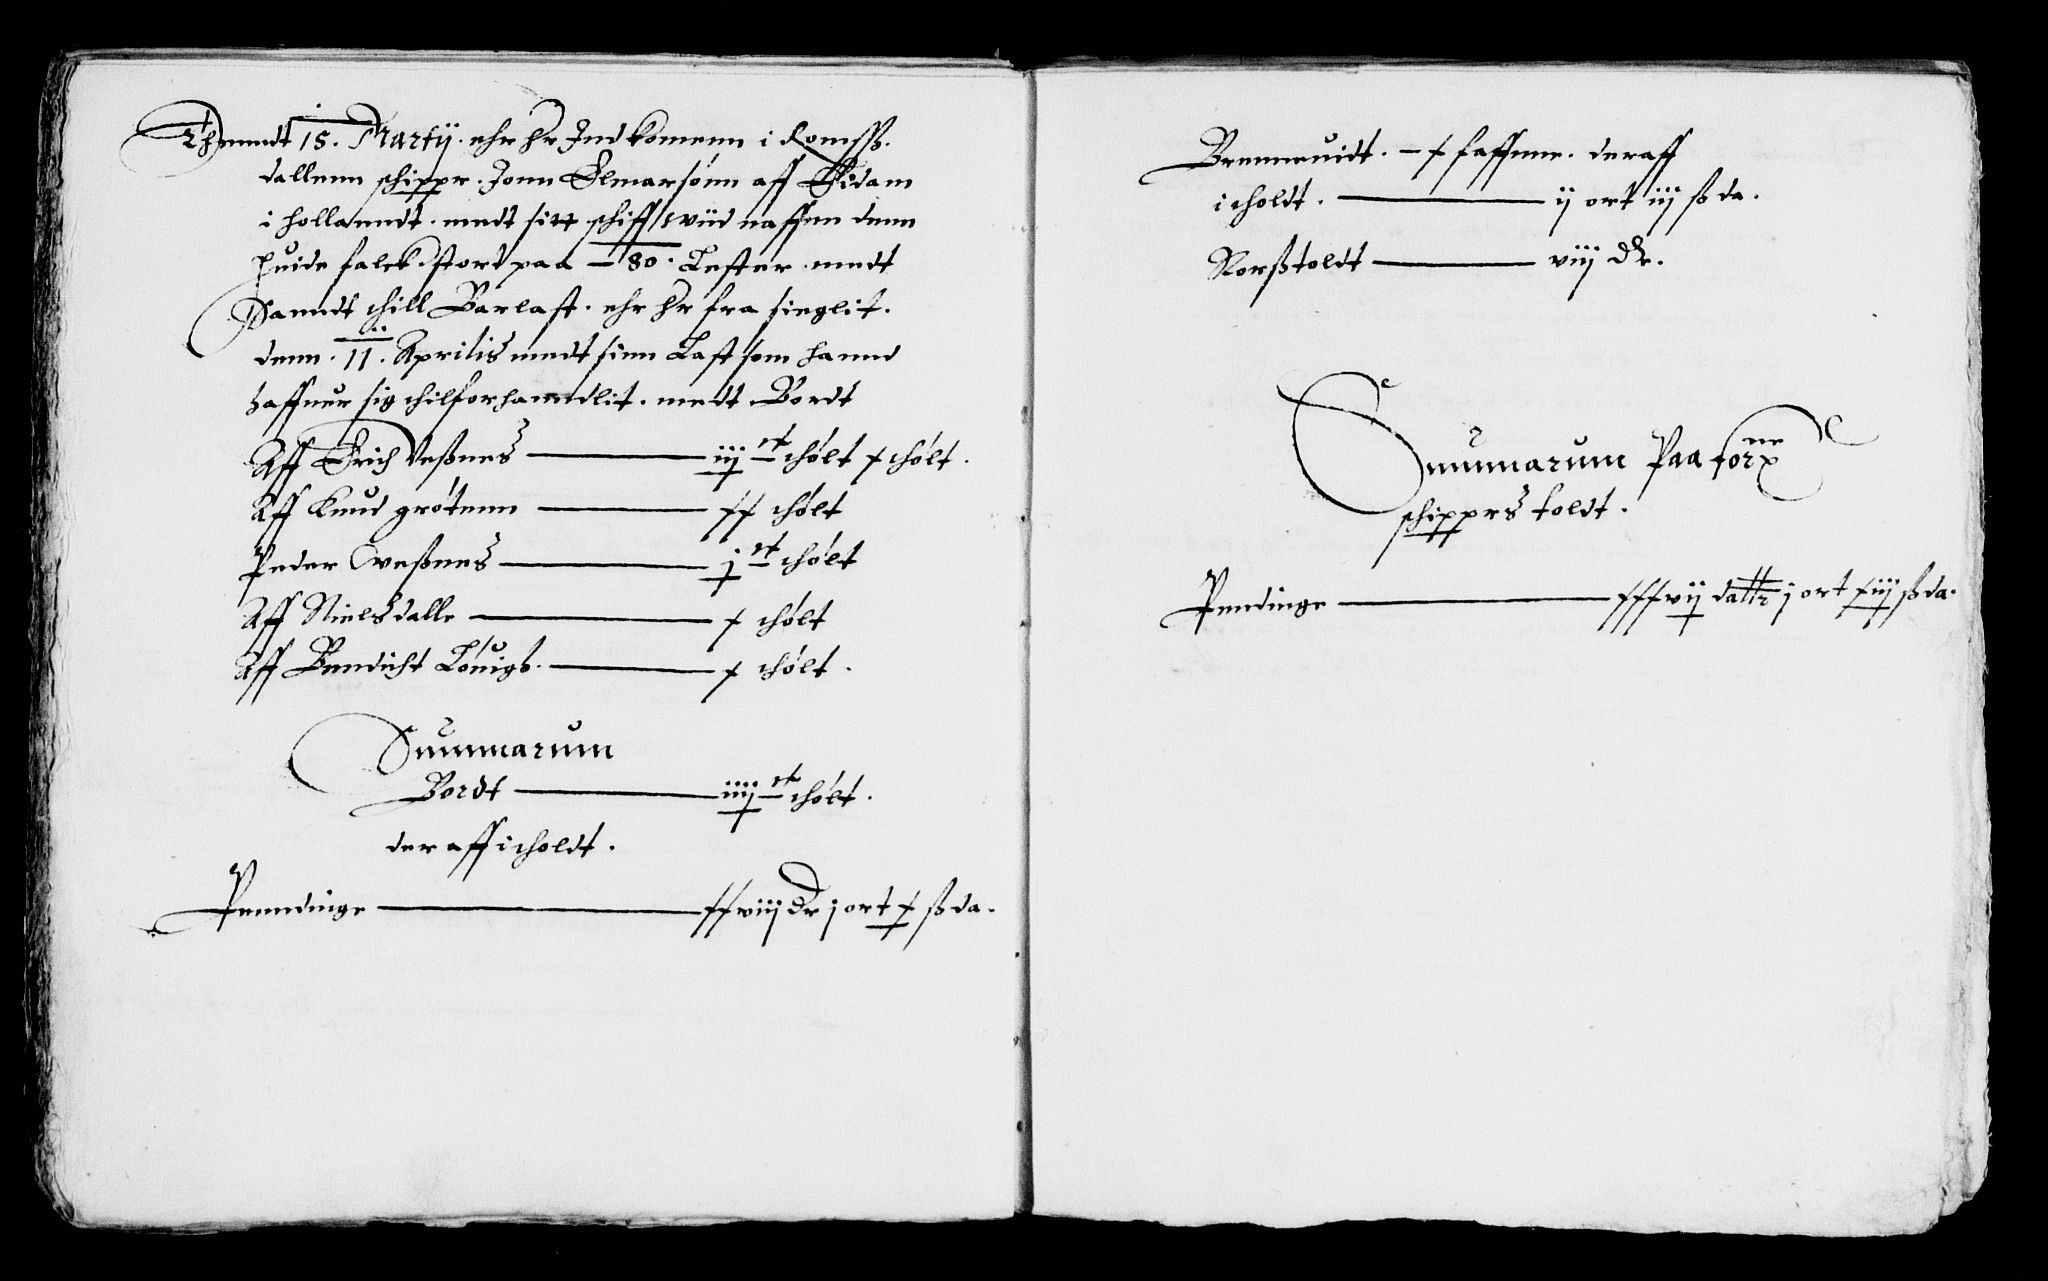 Thenndt 15. Martij. ehr hr Indkomenn i Romssß.
dallenn schippr. Jonn Elmarsønn aff Eidam
i hollanndt. medt sitt schiff wiid naffnn denn
huide falck. stort paa – 80. Lester. medt
Sanndt thill Barlast. ehr hr fra sieglit.
denn. 11. Aprilis medt sinn Last som hannd
haffuer sig thilforhanndlit. medt Bordt
Aff Erich Veßnes — iij c thølt x thølt.
Aff Knud grøtenn — xx thølt
Peder Oveßnes — j c thølt
Aff Nielsdalle — x thølt
Aff Bendicht Løuigs. — x thølt.
Summarum
Bordt — iiij c tholt.
der aff itholdt.
Penndinge — xxviij dr j ort x ß da.
Brenneuidt. – x faffnne. deraff
itholdt. — ij ort iij ß da.
Norßtoldt — viij dr.
Summarum Paa forne
schipprs toldt.
Pendinge — xxxvij dallr j ort xiij ß da.